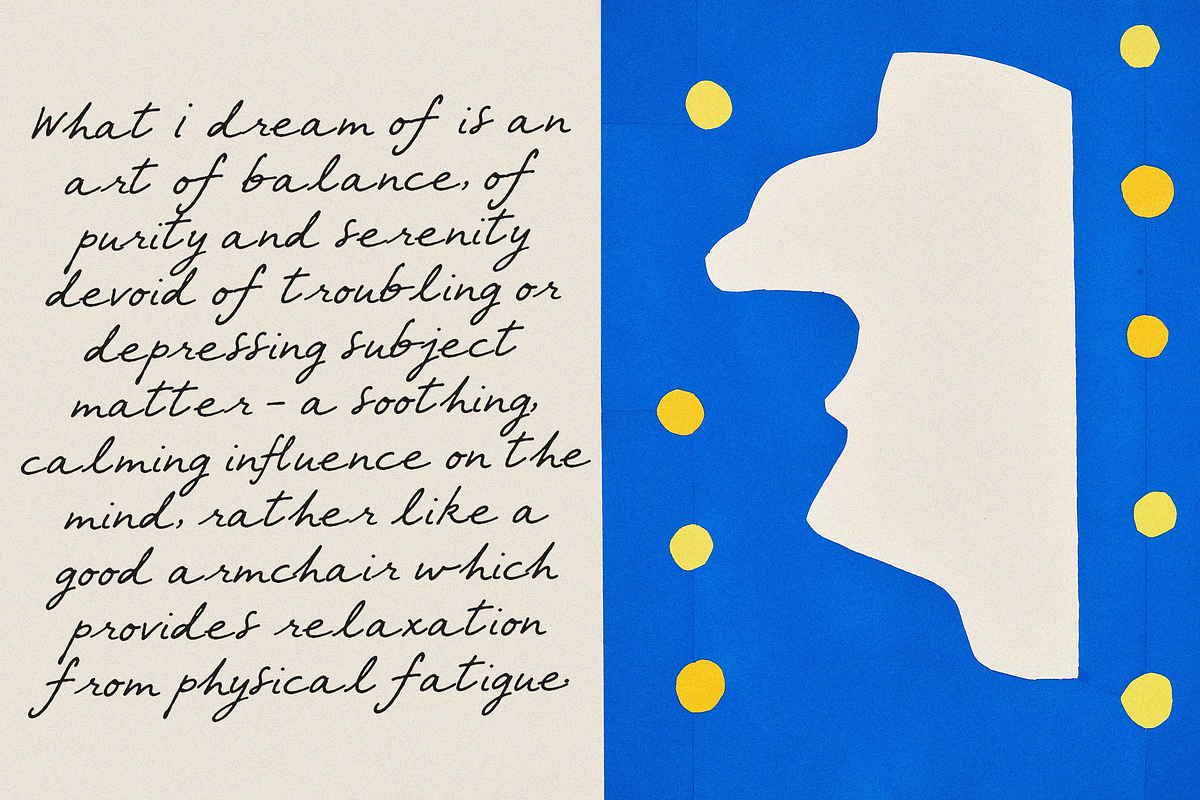 What i dream of is an
art of balance, of
purity and serenity
devoid of troubling or
depressing subject
matter - a soothing,
calming influence on the
mind, rather like a
good armchair which
provides relaxation
from physical fatigue.